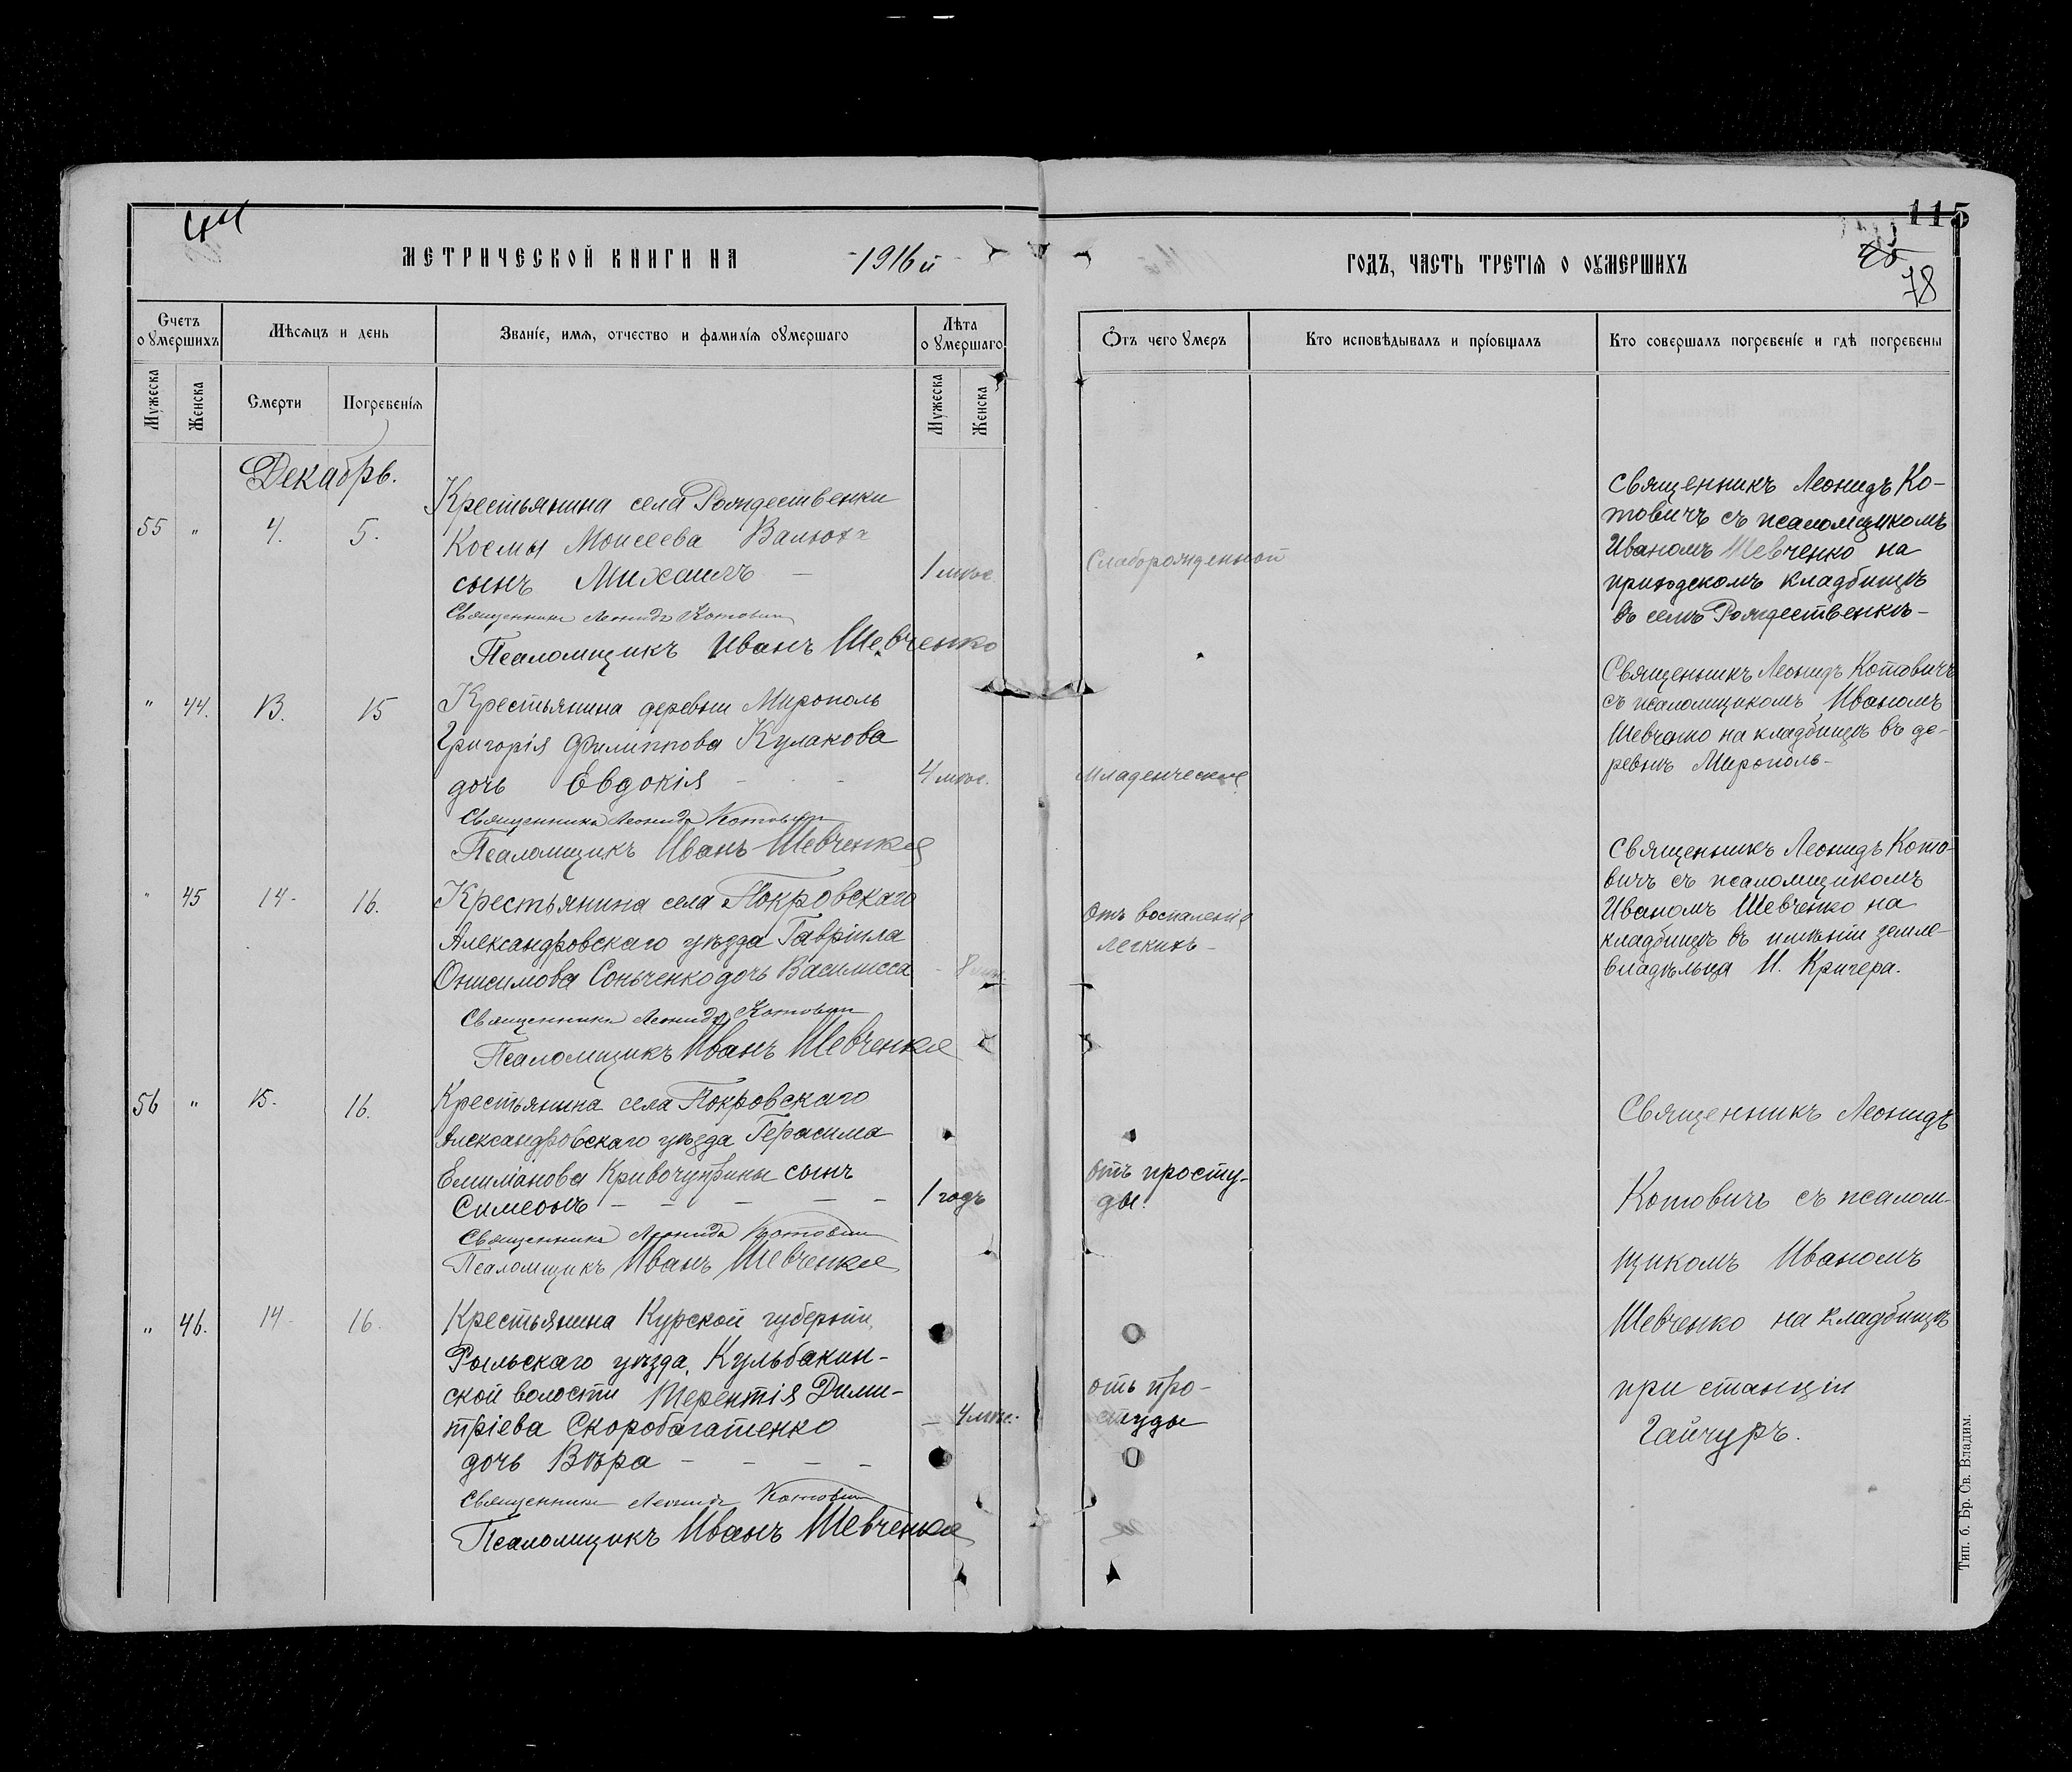 115
МЕТРИЧЕСКОЙ КНИГИ НА 1916 й ГОДЪ, ЧАСТЬ ТРЕТІѦ О ОУМЕРШИХЪ
78
Счетъ оумершихъ
Мѣсѧцъ и день
Званіе, имѧ, отчество и фамиліѧ оумершаго
Лѣта оумершаго
Ѿтъ чего оумеръ
Кто исповѣдывалъ и пріобщалъ
Кто совершалъ погребеніе и гдѣ погребены
Мужеска
Женска
Смерти
Погребеніѧ
Мужеска
Женска
Декабрь.
55 " 4. 5.
Крестьянина села Рождественки
Космы Моисеева
сынъ Михаилъ —
1 мѣс.
Слаборожденной
Священникъ Леонидъ Ко-
товичъ съ псаломщикомъ
Иваномъ Шевченко на
приходскомъ кладбищѣ
въ селѣ Рождественкѣ-
Священникъ Леонидъ Котович
Псаломщикъ Иванъ Шевченко
" 44. 13. 15
Крестьянина деревни Мирополь
Григорія Филиппова Кулакова
дочь Евдокія - - -
4 мѣс.
Младенческая
Священникъ Леонидъ Котовичъ
съ псаломщикомъ Иваномъ
Шевченко на кладбищѣ въ де-
ревнѣ Мирополь-
Священникъ Леонидъ Котович
Псаломщикъ Иванъ Шевченко
" 45 14- 16.
Крестьянина села Покровскаго
Александровскаго уѣзда Гавріила
Онисимова Соньченко дочь Василисса
- 8 мѣс.
Отъ воспаленія
легкихъ-
Священникъ Леонидъ Кото-
вичъ съ псаломщикомъ
Иваномъ Шевченко на
кладбищѣ въ имѣніи земле-
владѣльца И. Кригера.
Священникъ Леонидъ Котович
Псаломщикъ Иванъ Шевченко
56 " 15. 16.
Крестьянина села Покровскаго
Александровскаго уѣзда Герасима
Емиліанова Кривочуприны сынъ
Симеонъ — — — — —
1 годъ
отъ просту-
ды.
Священникъ Леонидъ
Котовичъ съ псалом-
щикомъ Иваномъ
Шевченко на кладбищѣ
при станціи
Гайчуръ.
Священникъ Леонидъ Котович
Псаломщикъ Иванъ Шевченко
" 46. 14- 16.
Крестьянина Курской губерніи,
Рыльскаго уѣзда, Кульбакин-
ской волости Терентія Дими-
тріева Скоробагатенко
дочь Вѣра — — — —
— 4 мѣс.
отъ про-
студы
Священникъ Леонидъ Котович
Псаломщикъ Иванъ Шевченко
Тип. б. Бр. Св. Владим.